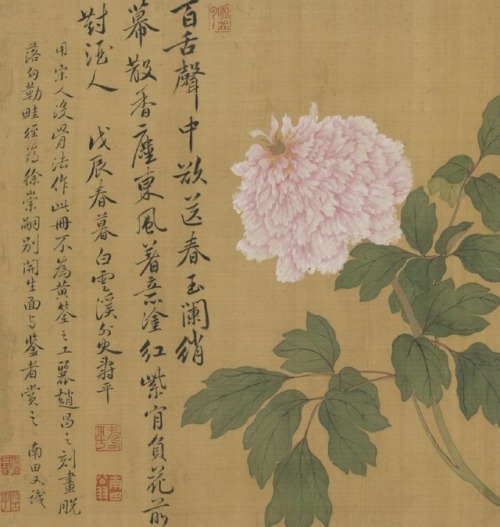 百舌聲中欲送春玉闌綃
幕散香塵東風著意塗紅紫肯負花前
對酒人
戊辰春暮白雲溪外史壽平
用宋人沒骨法作此冊不為黃筌之工麗趙昌之刻畫脫
落勾勒畦徑為徐崇嗣別開生面与鑒者賞之 南田又識